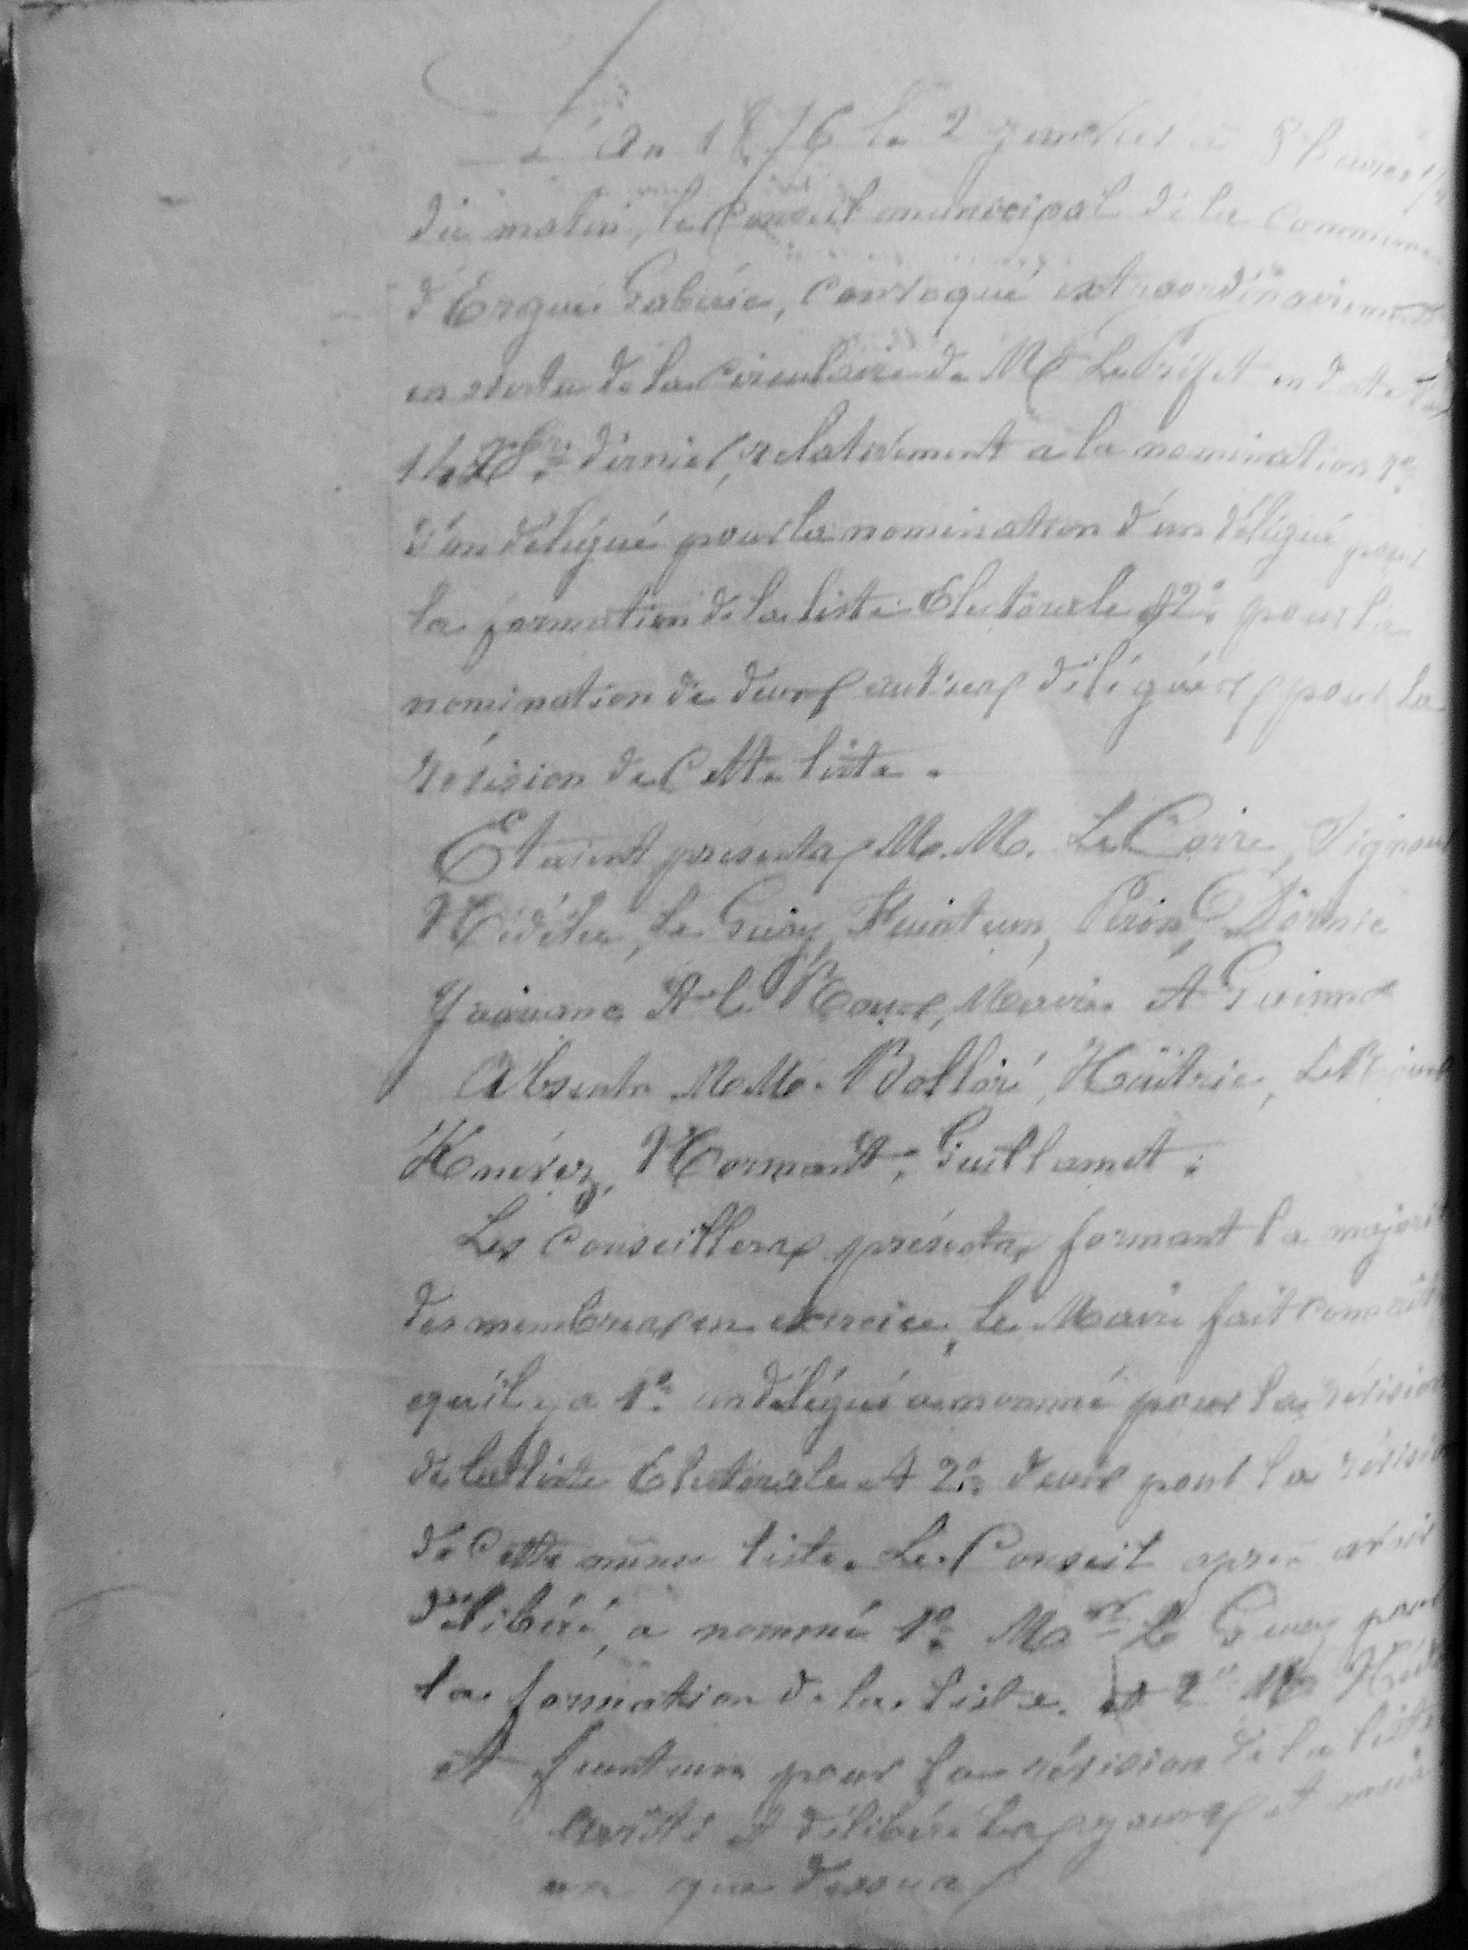 L'an 1876 le 2 janvier à 8 heures 1/2
du matin, le Conseil municipal de la Commune
d'Ergué Gabéric, convoqué extraordinairement
en vertu de la circulaire de Mr Le Préfet en date du
dernier, relativement a la nomination 1o
d'un délégué pour la nomination d'un délégué pour
la formation de la liste Electorale et 2o pour la
nomination de deux autres délégués pour la
révision de Cette liste.
Etaient présents M.M. Le Corre,
Nédélec, Le Guay, Feunteun,
et Le Roux, Maire et
Absents M.M. Bolloré, Le
Guillamet.
Les Conseillers présents formant la majorité
des membres en exercice, Le Maire fait connaître
qu'il y a 1o un délégué a nommé pour la révision
de la liste Electorale et 2o deux pour la révision
de Cette même liste. Le Conseil après avoir
délibéré, a nommé 1o Mr Le Guay pour
la formation de la liste. et 2o
et feunteun pour la révision de la liste
Arrêté et délibéré les jours et mois
an que dessus